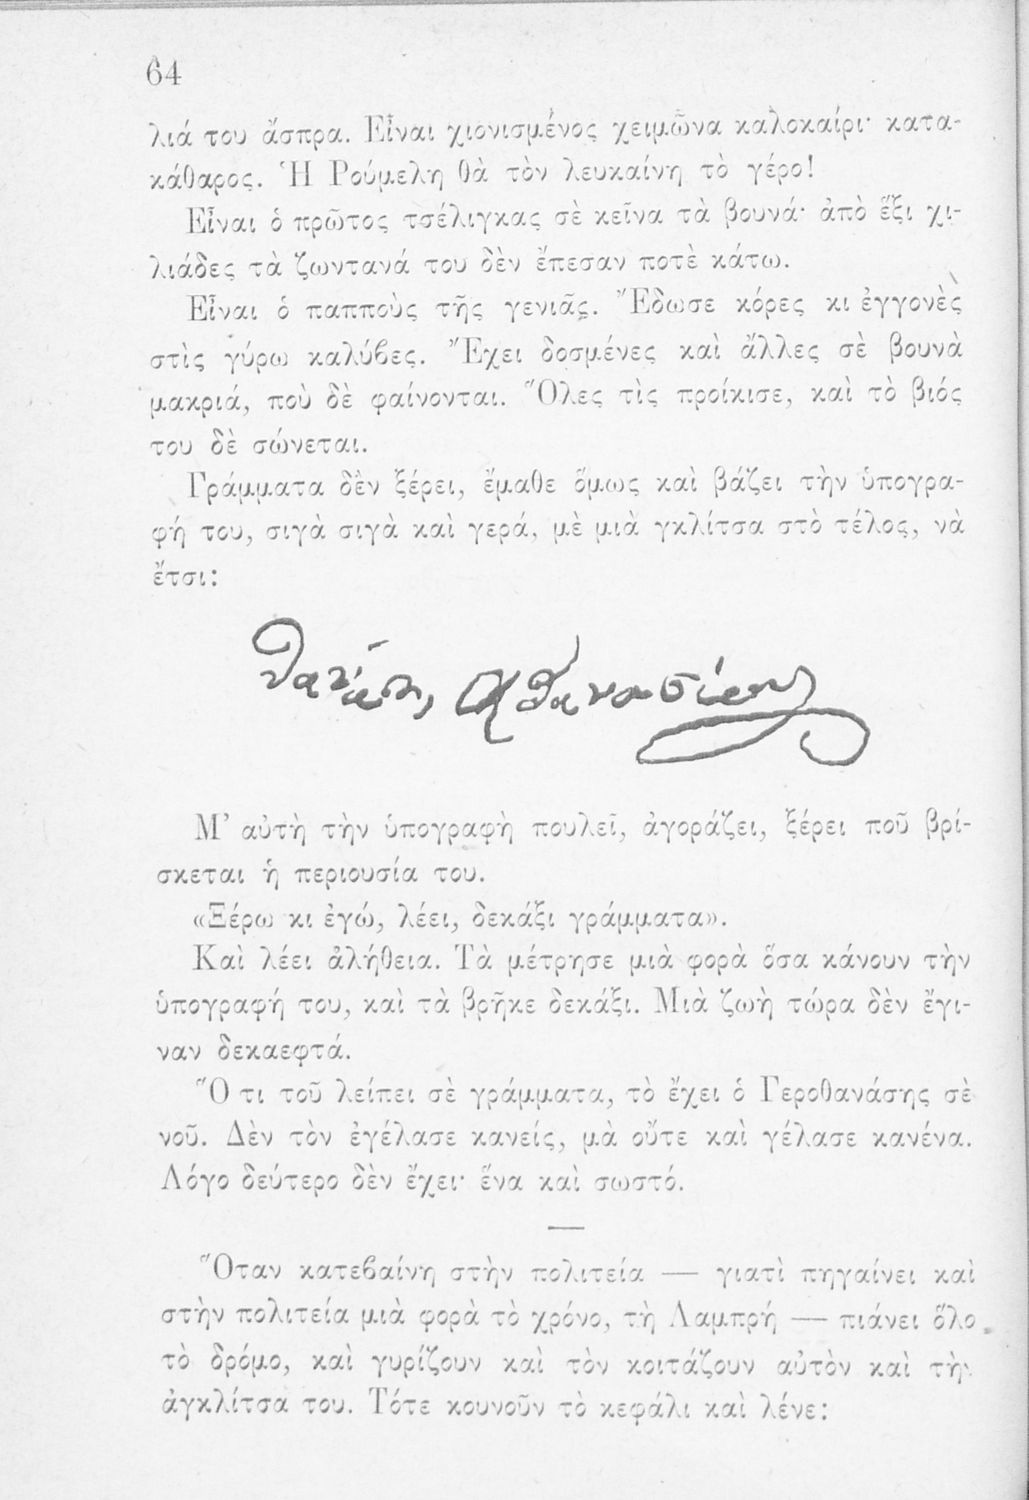 64
λιά του ἄσπρα. Εἶναι χιονισμένος χειμῶνα καλοκαίρι· κατα-
κάθαρος. Ἡ Ρούμελη θὰ τὸν λευκαίνη τὸ γέρο!
Εἶναι ὁ πρῶτος τσέλιγκας σὲ κεῖνα τὰ βουνά· ἀπὸ ἕξι χι-
λιάδες τὰ ζωντανά του δὲν ἔπεσαν ποτὲ κάτω.
Εἶναι ὁ παπποὺς τῆς γενιᾶς. Ἔδωσε κόρες κι ἐγγονὲς
στὶς γύρω καλύβες. Ἔχει δοσμένες καὶ ἄλλες σὲ βουνὰ
μακριά, ποὺ δὲ φαίνονται. Ὅλες τὶς προίκισε, καὶ τὸ βιός
του δὲ σώνεται.
Γράμματα δὲν ξέρει, ἔμαθε ὅμως καὶ βάζει τὴν ὑπογρα-
φή του, σιγὰ σιγὰ καὶ γερά, μὲ μιὰ γκλίτσα στὸ τέλος, νὰ
ἔτσι:
Μ’ αὐτὴ τὴν ὑπογραφὴ πουλεῖ, ἀγοράζει, ξέρει ποῦ βρί-
σκεται ἡ περιουσία του.
«Ξέρω κι ἐγώ, λέει, δεκάξι γράμματα».
Καὶ λέει ἀλήθεια. Τὰ μέτρησε μιὰ φορὰ ὅσα κάνουν τὴν
ὑπογραφή του, καὶ τὰ βρῆκε δεκάξι. Μιὰ ζωὴ τώρα δὲν ἔγι-
ναν δεκαεφτά.
Ὅ τι τοῦ λείπει σὲ γράμματα, τὸ ἔχει ὁ Γεροθανάσης σὲ
νοῦ. Δὲν τὸν ἐγέλασε κανείς, μὰ οὔτε καὶ γέλασε κανένα.
Λόγο δεύτερο δὲν ἔχει· ἕνα καὶ σωστό.
Ὅταν κατεβαίνη στὴν πολιτεία — γιατὶ πηγαίνει καὶ
στὴν πολιτεία μιὰ φορὰ τὸ χρόνο, τὴ Λαμπρή — πιάνει ὅλο
τὸ δρόμο, καὶ γυρίζουν καὶ τὸν κοιτάζουν αὐτὸν καὶ τὴν
ἀγκλίτσα του. Τότε κουνοῦν τὸ κεφάλι καὶ λένε: